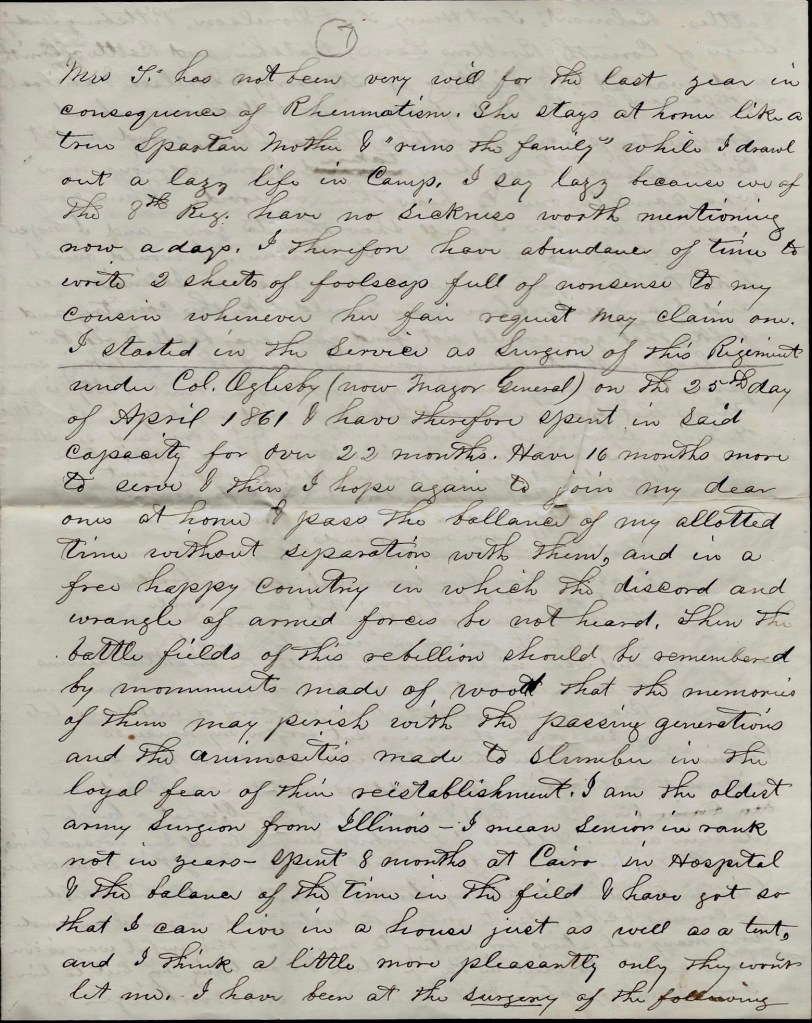 7
Mrs T. has not been very well for the last year in
consequence of Rheumatism. She stays at home like a
true Spartan Mother & "runs the family" while I drawl
out a lazy life in Camp. I say lazy because we of
the 8th Reg. have no sickness worth mentioning
now adays. I therefore have abundance of time to
write 2 sheets of foolscap full of nonsense to my
cousin whenever her fair request may claim one.
I started in the service as Surgeon of this Regiment
under Col. Oglesby (now Major General) on the 25th day
of April 1861 & have therefore spent in said
capacity for over 22 months. Have 16 months more
to serve & then I hope again to join my dear
ones at home & pass the ballance of my allotted
time without separation with them, and in a
free happy country in which the discord and
wrangle of armed forces be not heard. Then the
battle fields of this rebellion should be remembered
by monuments made of wood that the memories
of them may perish with the passing generations
and the animosities made to slumber in the
loyal fear of their reëstablishment. I am the oldest
army Surgeon from Illinois – I mean Senior in rank
not in years – spent 8 months at Cairo in Hospital
& the balance of the time in the field & have got so
that I can live in a house just as well as a tent,
and I think a little more pleasantly only they wont
let me. I have been at the surgery of the following